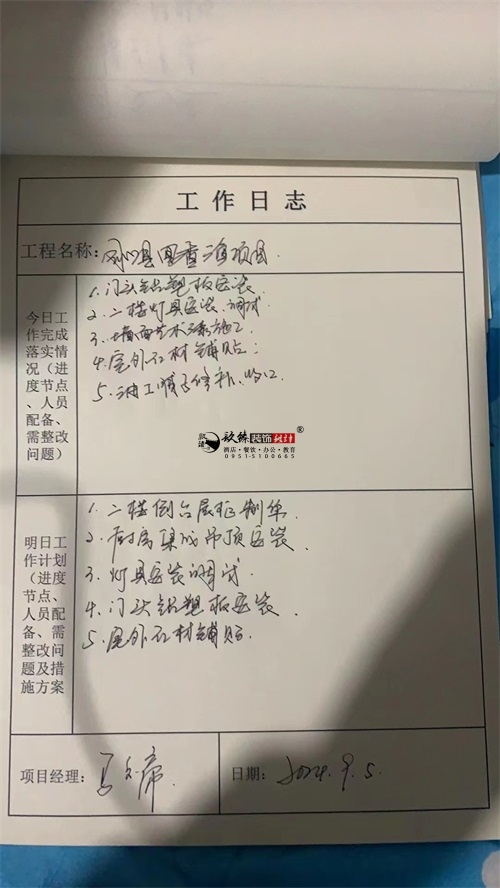 工作日志
工程名称:
今日工
作完成
落实情
况（进
度节点
、人员
配备、
需整改
问题）
1. 门头铝塑板安装
2. 二楼灯具安装、调试
3. 墙面艺术漆施工
4. 屋外石材铺贴;
5. 油工顺子修补、收口
玖臻装饰设计®
酒店·餐饮·办公·教育
0951-5100665
明日工
作计划
（进度
节点、
人员配
备、需
整改问
题及措
施方案
1. 二楼倒台展柜制单
2. 厨房集成吊顶安装
3. 灯具安装调试
4. 门头铝塑板安装
5. 屋外石材铺贴.
项目经理:
日期: 2024.9.5.